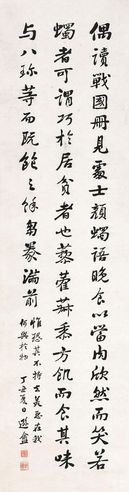 偶讀戰國册見處士顏蠋語晚食以當肉欣然而笑若
蠋者可謂巧於居貧者也藜藿菽黍方飢而食其味
與八珍等而既飽之餘芻豢滿前
惟恐其不持去美惡在我
何與於物 丁丑夏日